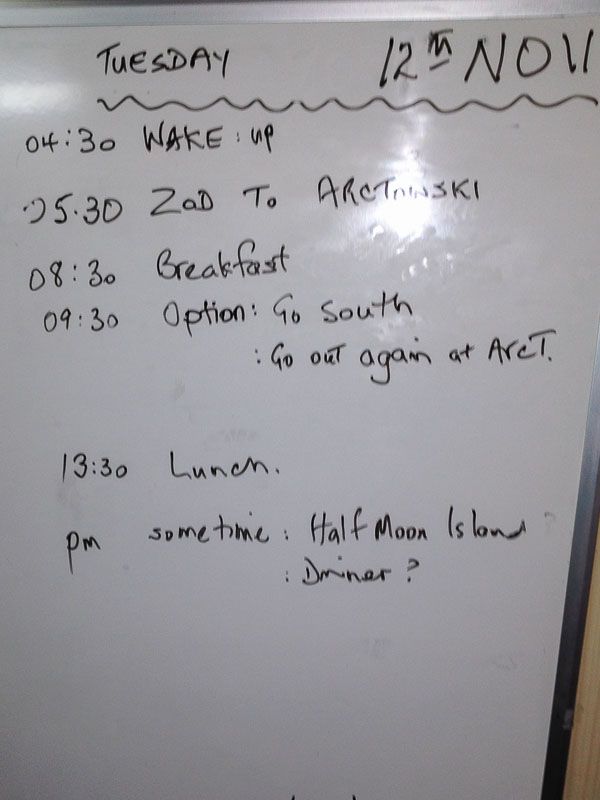 TUESDAY 12TH NOV
04:30 WAKE: up
05.30 ZOD TO ARCTOWSKI
08:30 Breakfast
09:30 Option: Go South
: Go out again at ArcT.
13:30 Lunch.
pm sometime: Half Moon Island ?
: Dinner?